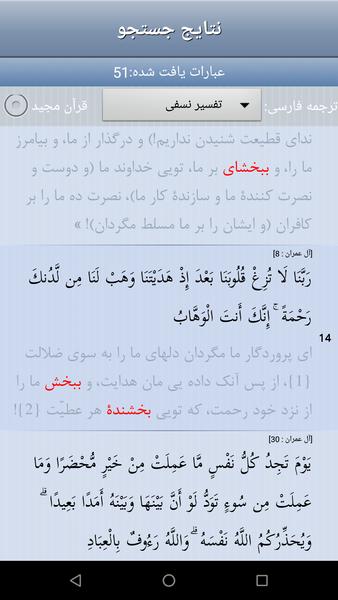 نتایج جستجو
عبارات یافت شده:51
ترجمه فارسی: تفسیر نسفی قرآن مجید
ندای قطیعت شنیدن نداریم!) و درگذار از ما، و بیامرز
ما را، و ببخشای بر ما، تویی خداوند ما (و دوست و
نصرت کنندهٔ ما و سازندهٔ کار ما)، نصرت ده ما را بر
کافران (و ایشان را بر ما مسلط مگردان)! »
[آل عمران : 8]
رَبَّنَا لَا تُزِغْ قُلُوبَنَا بَعْدَ إِذْ هَدَيْتَنَا وَهَبْ لَنَا مِن لَّدُنكَ
رَحْمَةً ۚ إِنَّكَ أَنتَ الْوَهَّابُ
14
ای پروردگار ما مگردان دلهای ما را به سوی ضلالت
[1]، از پس آنک داده یی مان هدایت، و ببخش ما را
از نزد خود رحمت، که تویی بخشندهٔ هر عطیّت [2]!
[آل عمران : 30]
يَوْمَ تَجِدُ كُلُّ نَفْسٍ مَّا عَمِلَتْ مِنْ خَيْرٍ مُّحْضَرًا وَمَا
عَمِلَتْ مِن سُوءٍ تَوَدُّ لَوْ أَنَّ بَيْنَهَا وَبَيْنَهُ أَمَدًا بَعِيدًا ۗ
وَيُحَذِّرُكُمُ اللَّهُ نَفْسَهُ ۗ وَاللَّهُ رَءُوفٌ بِالْعِبَادِ